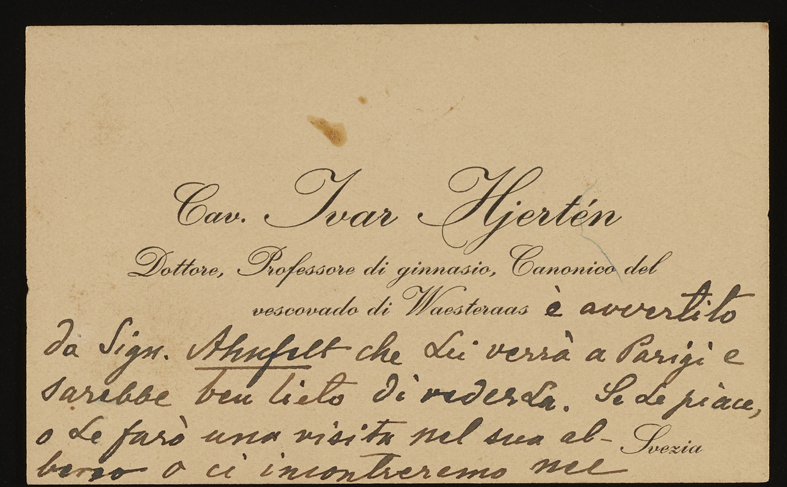 Cav. Ivar Hjertén
Dottore, Professore di ginnasio, Canonico del
vescovado di Waesteraas è avvertito
da Sign. Ahnfelt che Lei verrà a Parigi e
sarebbe ben lieto di vederLa. Se Le piace,
o Le farò una visita nel suo al-
bergo o ci incontreremo nel
Svezia